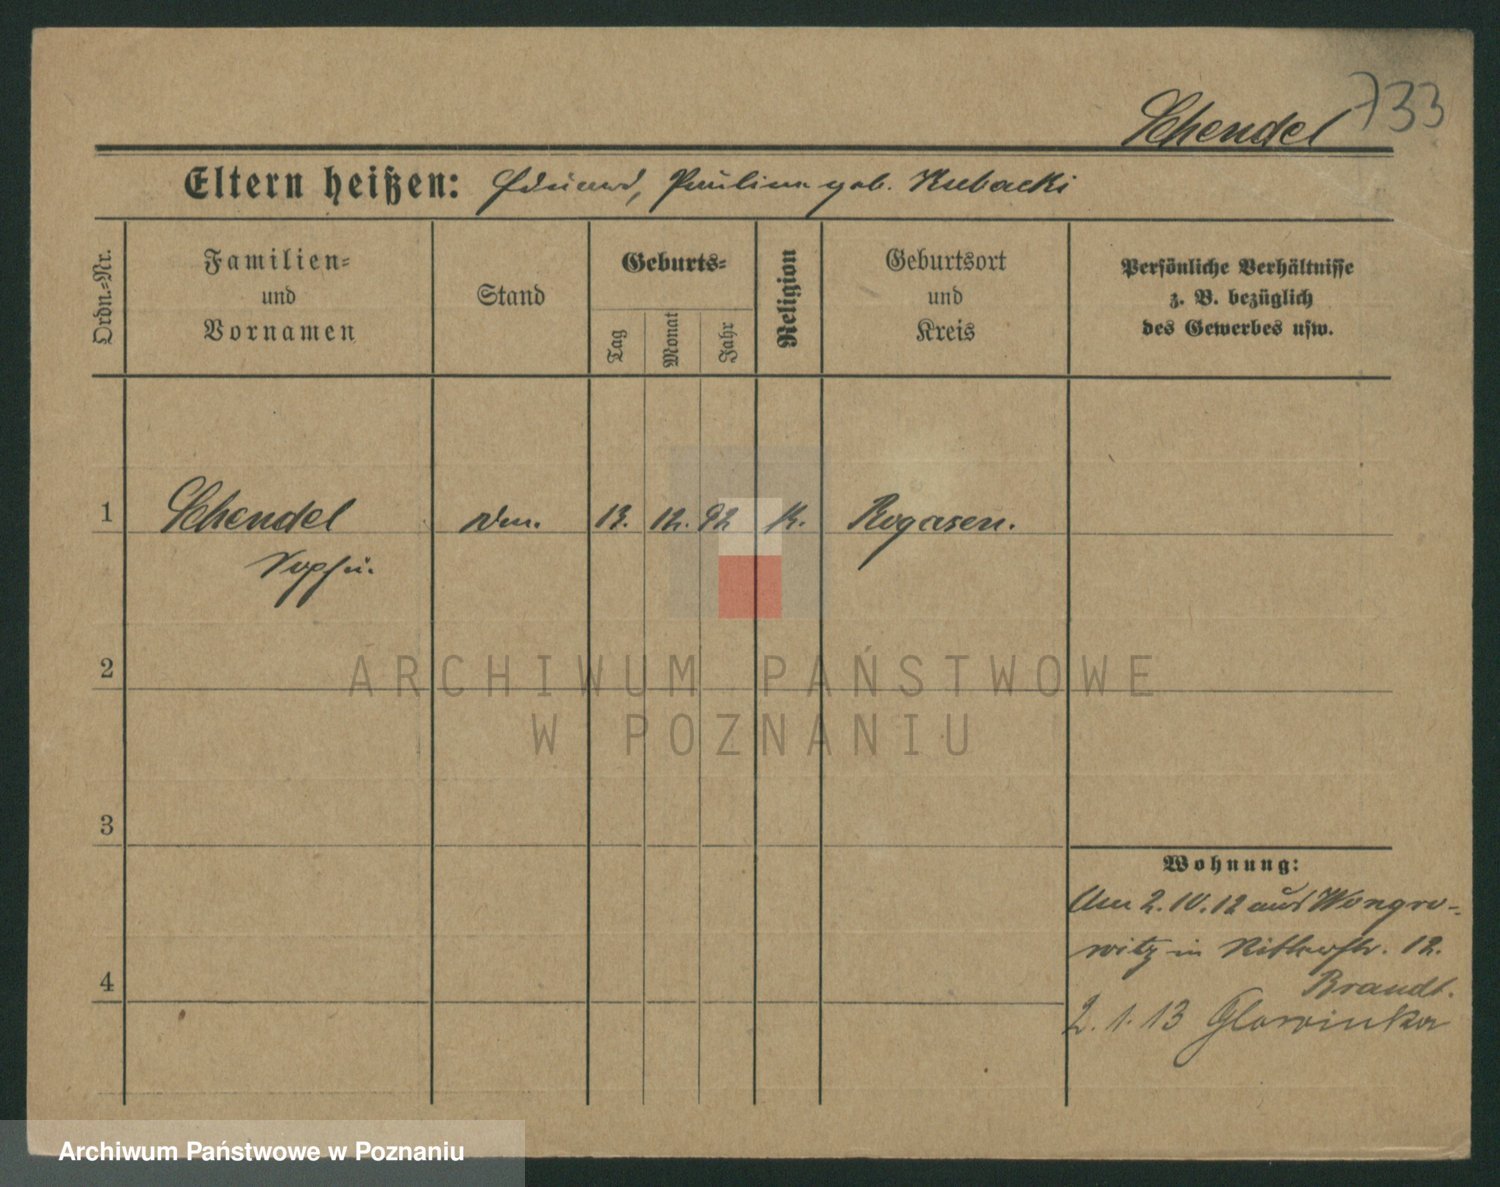 733
Schendel
Eltern heißen: Eduard, Paulina geb. Kubacki
Ordn.-Nr.
Familien-
und
Vornamen
Stand
Geburts-
Tag
Monat
Jahr
Religion
Geburtsort
und
Kreis
Persönliche Verhältnisse
z. B. bezüglich
des Gewerbes usw.
1 Schendel 13. 12. 92 K. Rogasen.
Sophie.
2
ARCHIWUM PAŃSTWOWE
W POZNANIU
3
Wohnung:
Am 2.10.12 aus Wongro-
witz in Ritterstr. 12.
Brandt.
4
2.1.13 Glowinker
Archiwum Państwowe w Poznaniu